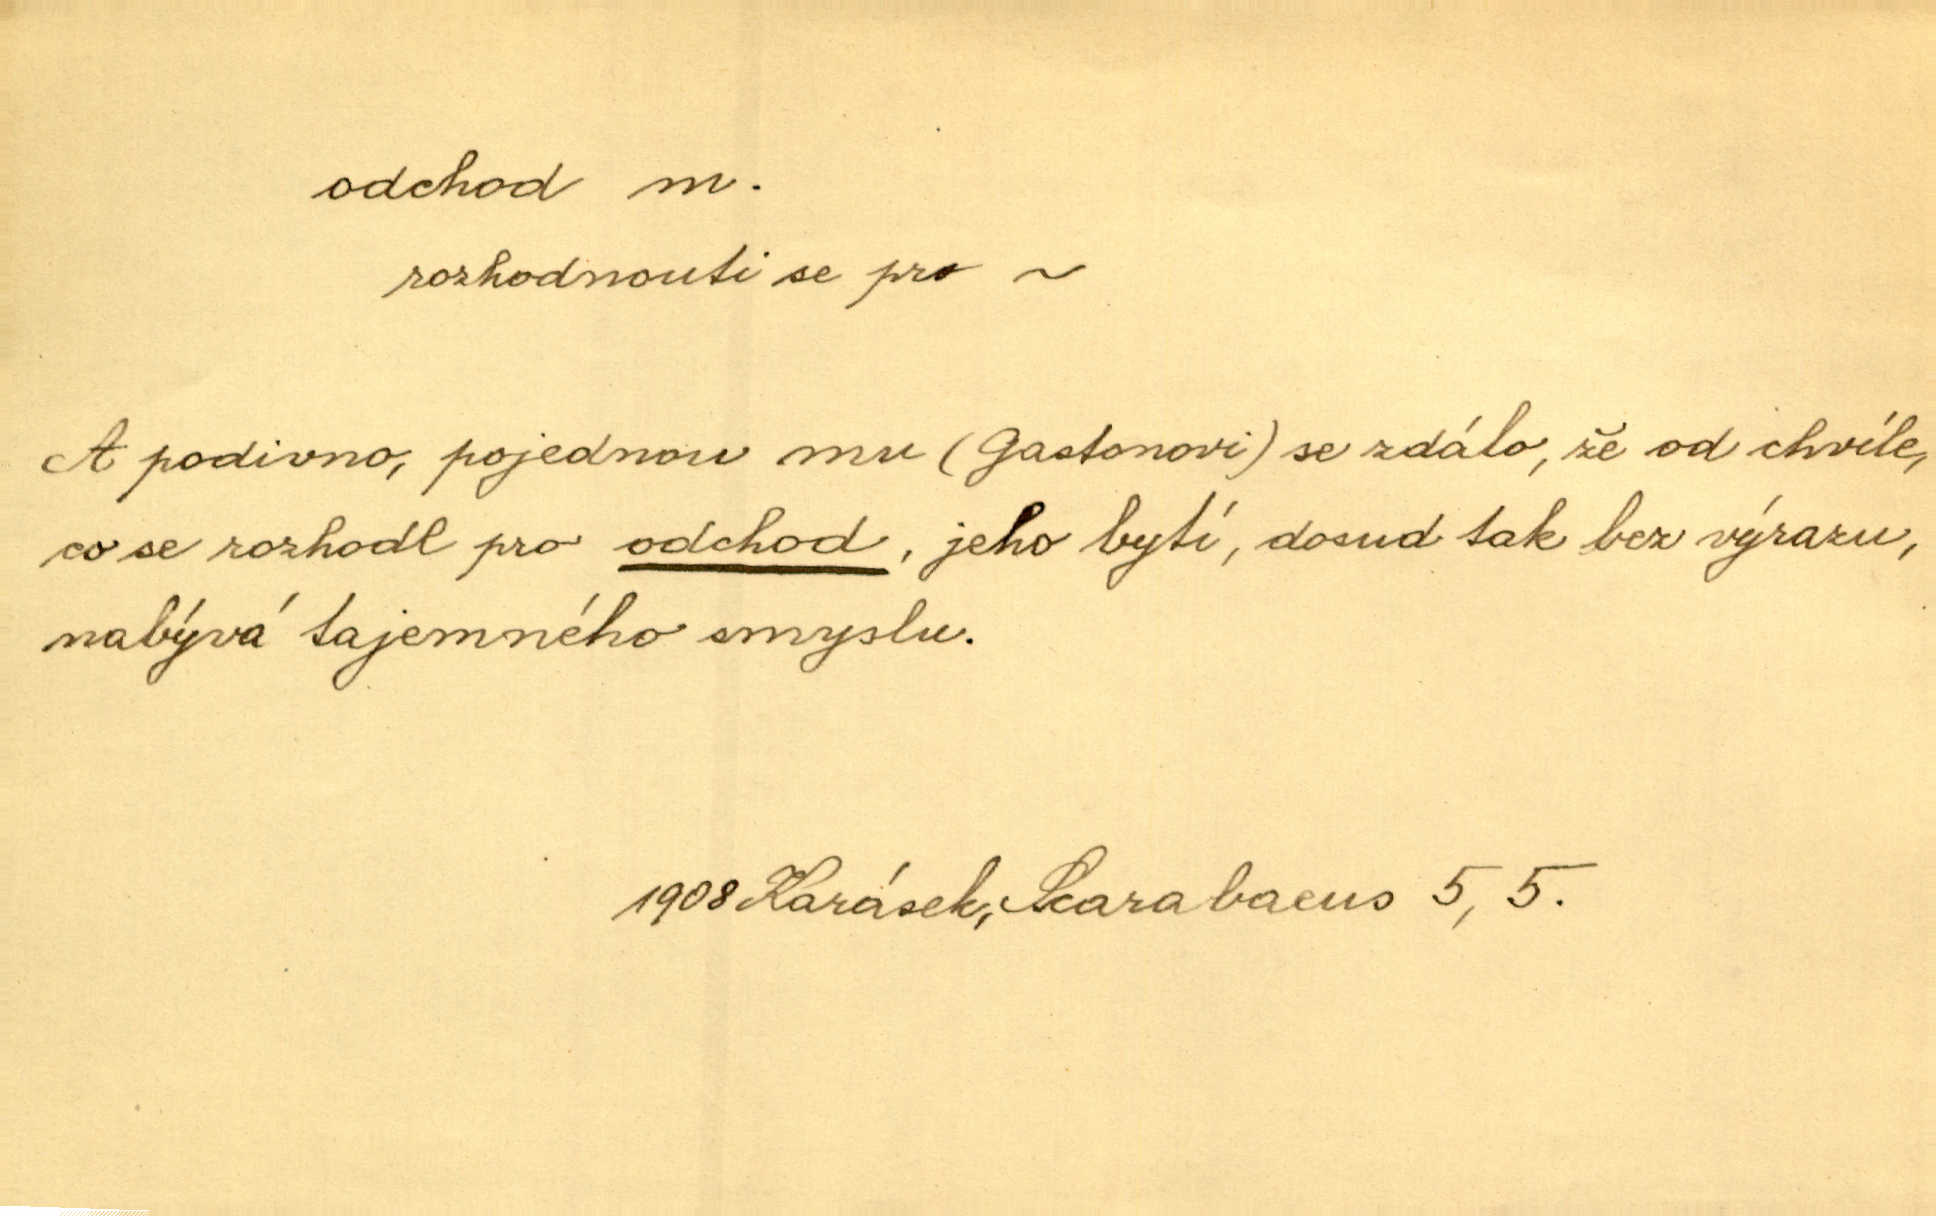 odchod m.
rozhodnouti se pro ~
A podivno, pojednou mu (Gastonovi) se zdálo, že od chvíle,
co se rozhodl pro odchod, jeho bytí, dosud tak bez výrazu,
nabývá tajemného smyslu.
1908 Karásek, Scarabaeus 5, 5.